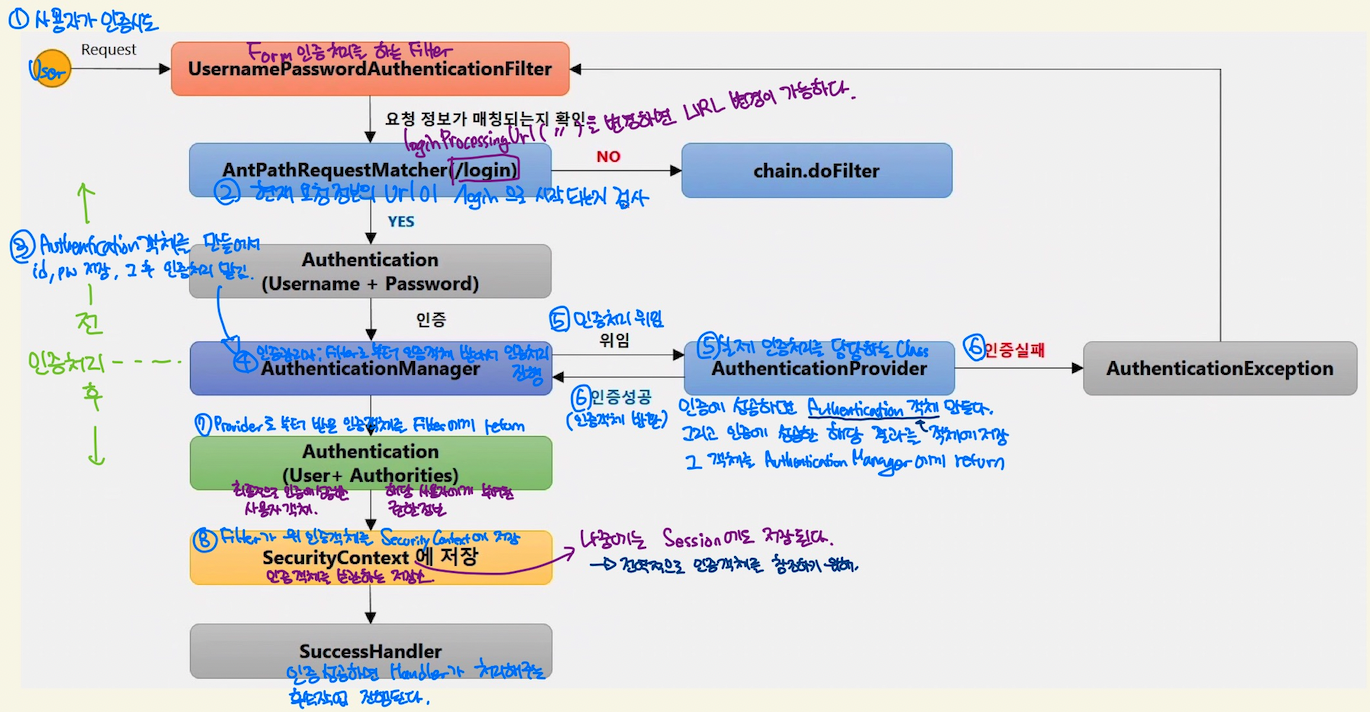 ① 사용자가 인증시도
User
Request
Form 인증처리를 하는 Filter
UsernamePasswordAuthenticationFilter
요청 정보가 매칭되는지 확인
loginProcessingUrl("")을 변경하면 URL 변경이 가능하다.
AntPathRequestMatcher(/login)
NO
chain.doFilter
② 현재 요청정보의 Url이 /login 으로 시작되는지 검사
YES
③ Authentication 객체를 만들어서
id, pw 저장, 그 후 인증처리 맡김.
Authentication
(Username + Password)
전
인증처리
후
인증
⑤ 인증처리 위임
위임
④ 인증관리자: Filter로 부터 인증객체 받아서 인증처리
진행
AuthenticationManager
⑤ 실제 인증처리를 담당하는 Class
AuthenticationProvider
⑥ 인증실패
AuthenticationException
⑥ 인증성공
(인증객체 반환)
인증에 성공하면 Authentication 객체 만든다.
그리고 인증에 성공한 해당 결과를 객체에 저장
그 객체를 Authentication Manager에게 return
⑦ Provider로 부터 받은 인증객체를 Filter에게 return
Authentication
(User+ Authorities)
최종적으로 인증에 성공한 해당 사용자에게 부여된
사용자 객체. 권한정보
⑧ Filter가 위 인증객체를 SecurityContext에 저장
SecurityContext 에 저장
인증객체를 보관하는 저장소
나중에는 Session에도 저장된다.
→ 전역적으로 인증객체를 참조하기 위해.
SuccessHandler
인증 성공하면 Handler가 처리해주는
후속작업 진행된다.